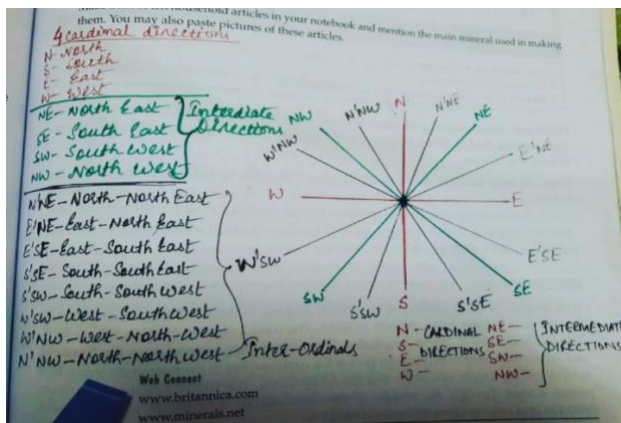 ten household articles in your notebook and mention the main mineral used in making
them. You may also paste pictures of these articles.
4 cardinal directions
N- North
S- South
E- East
W- West
NE- North East
SE- South East
SW- South West
NW- North West
Interdiate
Directions
N'NE- North-North East
E'NE- East-North East
E'SE- East-South East
S'SE- South-South East
S'SW- South-South West
W'SW- West-South West
W'NW- West-North-West
N'NW- North-North West
Inter-Ordinals
N
N'NE
NE
E'NE
E
E'SE
SE
S'SE
S
S'SW
SW
W'SW
W
W'NW
NW
N'NW
N- CARDINAL
S- DIRECTIONS
E-
W-
NE-
SE-
SW-
NW-
INTERMEDIATE
DIRECTIONS
Web Connect
www.britannica.com
www.minerals.net